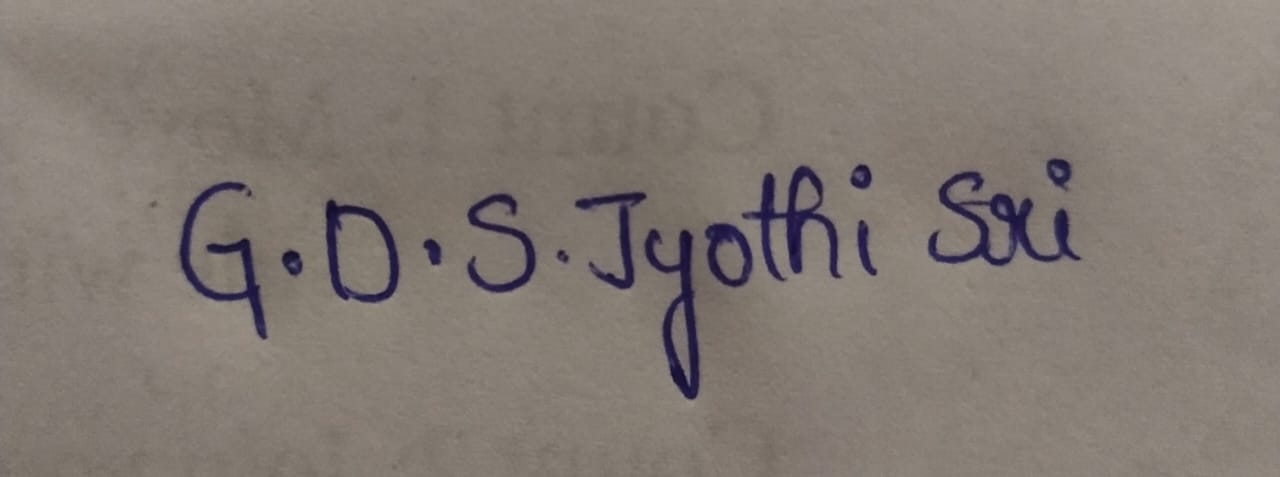 G.D.S.Jyothi Sri